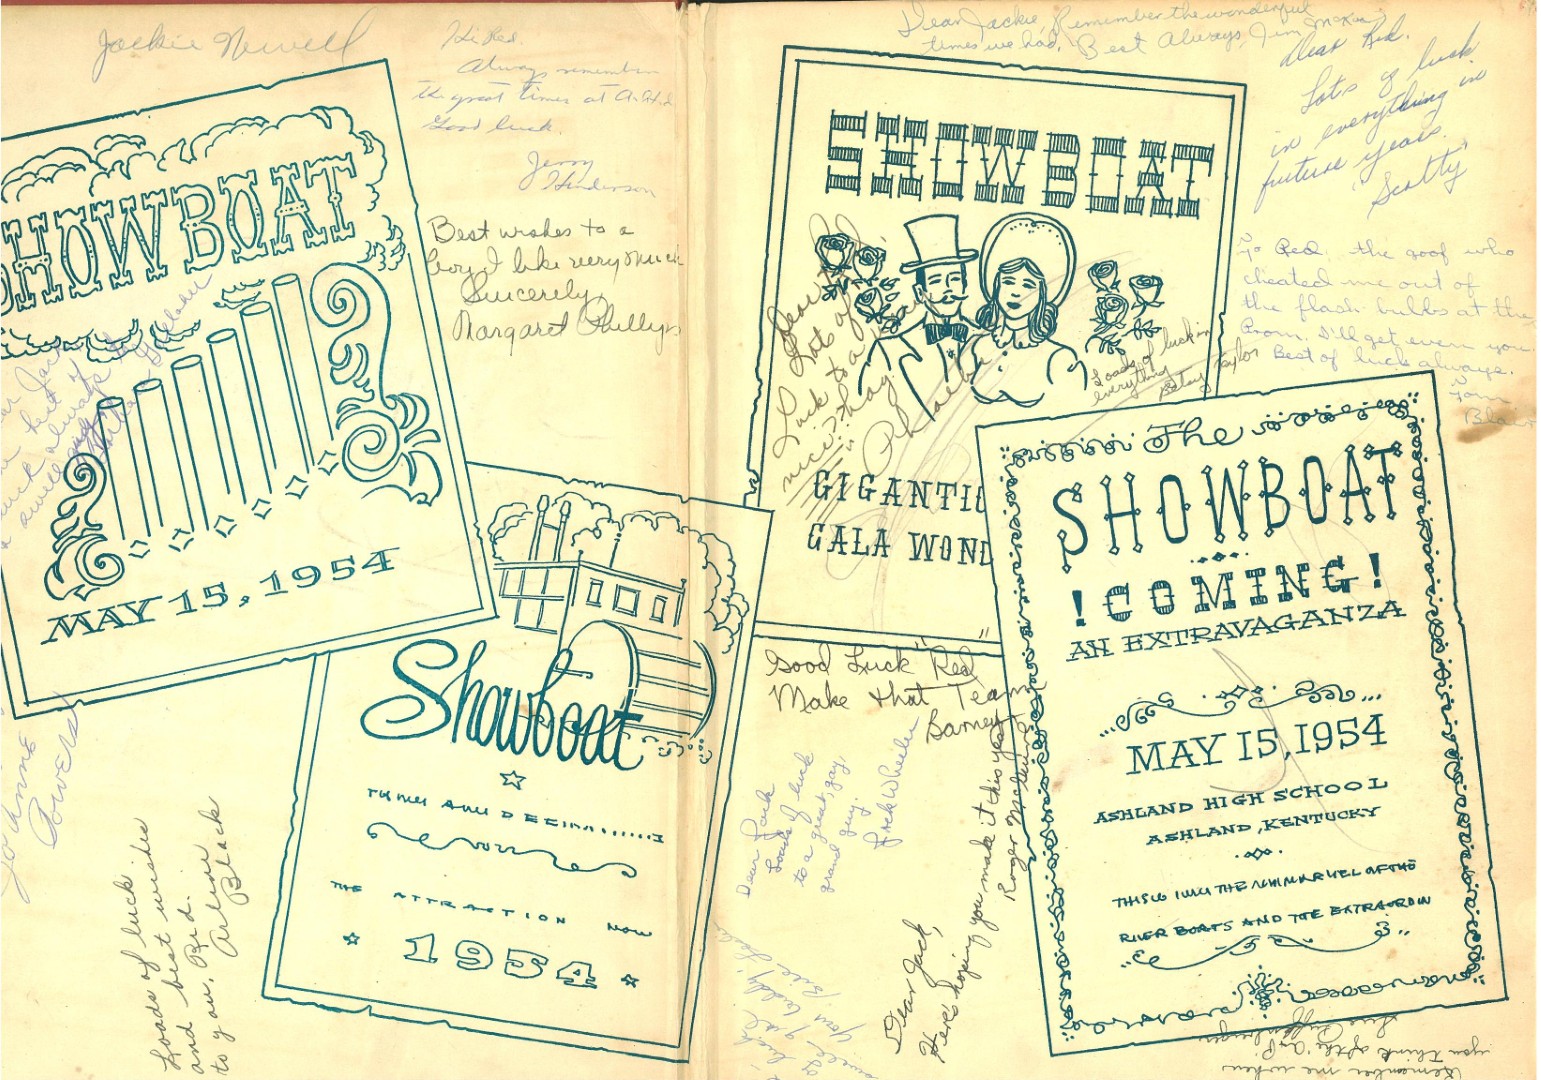 Jackie Newell
Hi Red.
Always remember
the great times at A.H.S.
Good luck.
Jerry
Henderson
Best wishes to a
boy I like very much
Sincerely,
Margaret Phillips
SHOWBOAT
MAY 15, 1954
Jo Anne
Powers
Loads of luck
and best wishes
to you, Red.
Arline
Black
Showboat
THE ATTRACTION NOW
1954
Dear Jackie, Remember the wonderful
times we had. Best Always, Jim
Dear Red.
Lots of luck
in everything in
future years.
"Scotty"
SHOWBOAT
GIGANTIC
GALA WOND
Dear
Lots of
Luck to a
nice? boy
Phoebe
Loads of luck in
everything
Betsy Taylor
To Red. the goof who
cheated me out of
the flash bulbs at the
Prom. I'll get even you.
Best of luck always.
Tom
Blair
Good Luck "Red"
Make that Team
Barney
Dear Jack
Loads of luck
to a great, gay,
grand guy.
Jack Wheeler
Dear Jack,
Here's hoping you make it this year
Roger
The
SHOWBOAT
! COMING !
AN EXTRAVAGANZA
MAY 15, 1954
ASHLAND HIGH SCHOOL
ASHLAND, KENTUCKY
RIVER BOATS AND THE EXTRAORDIN
Remember me when
you think of the
Sue